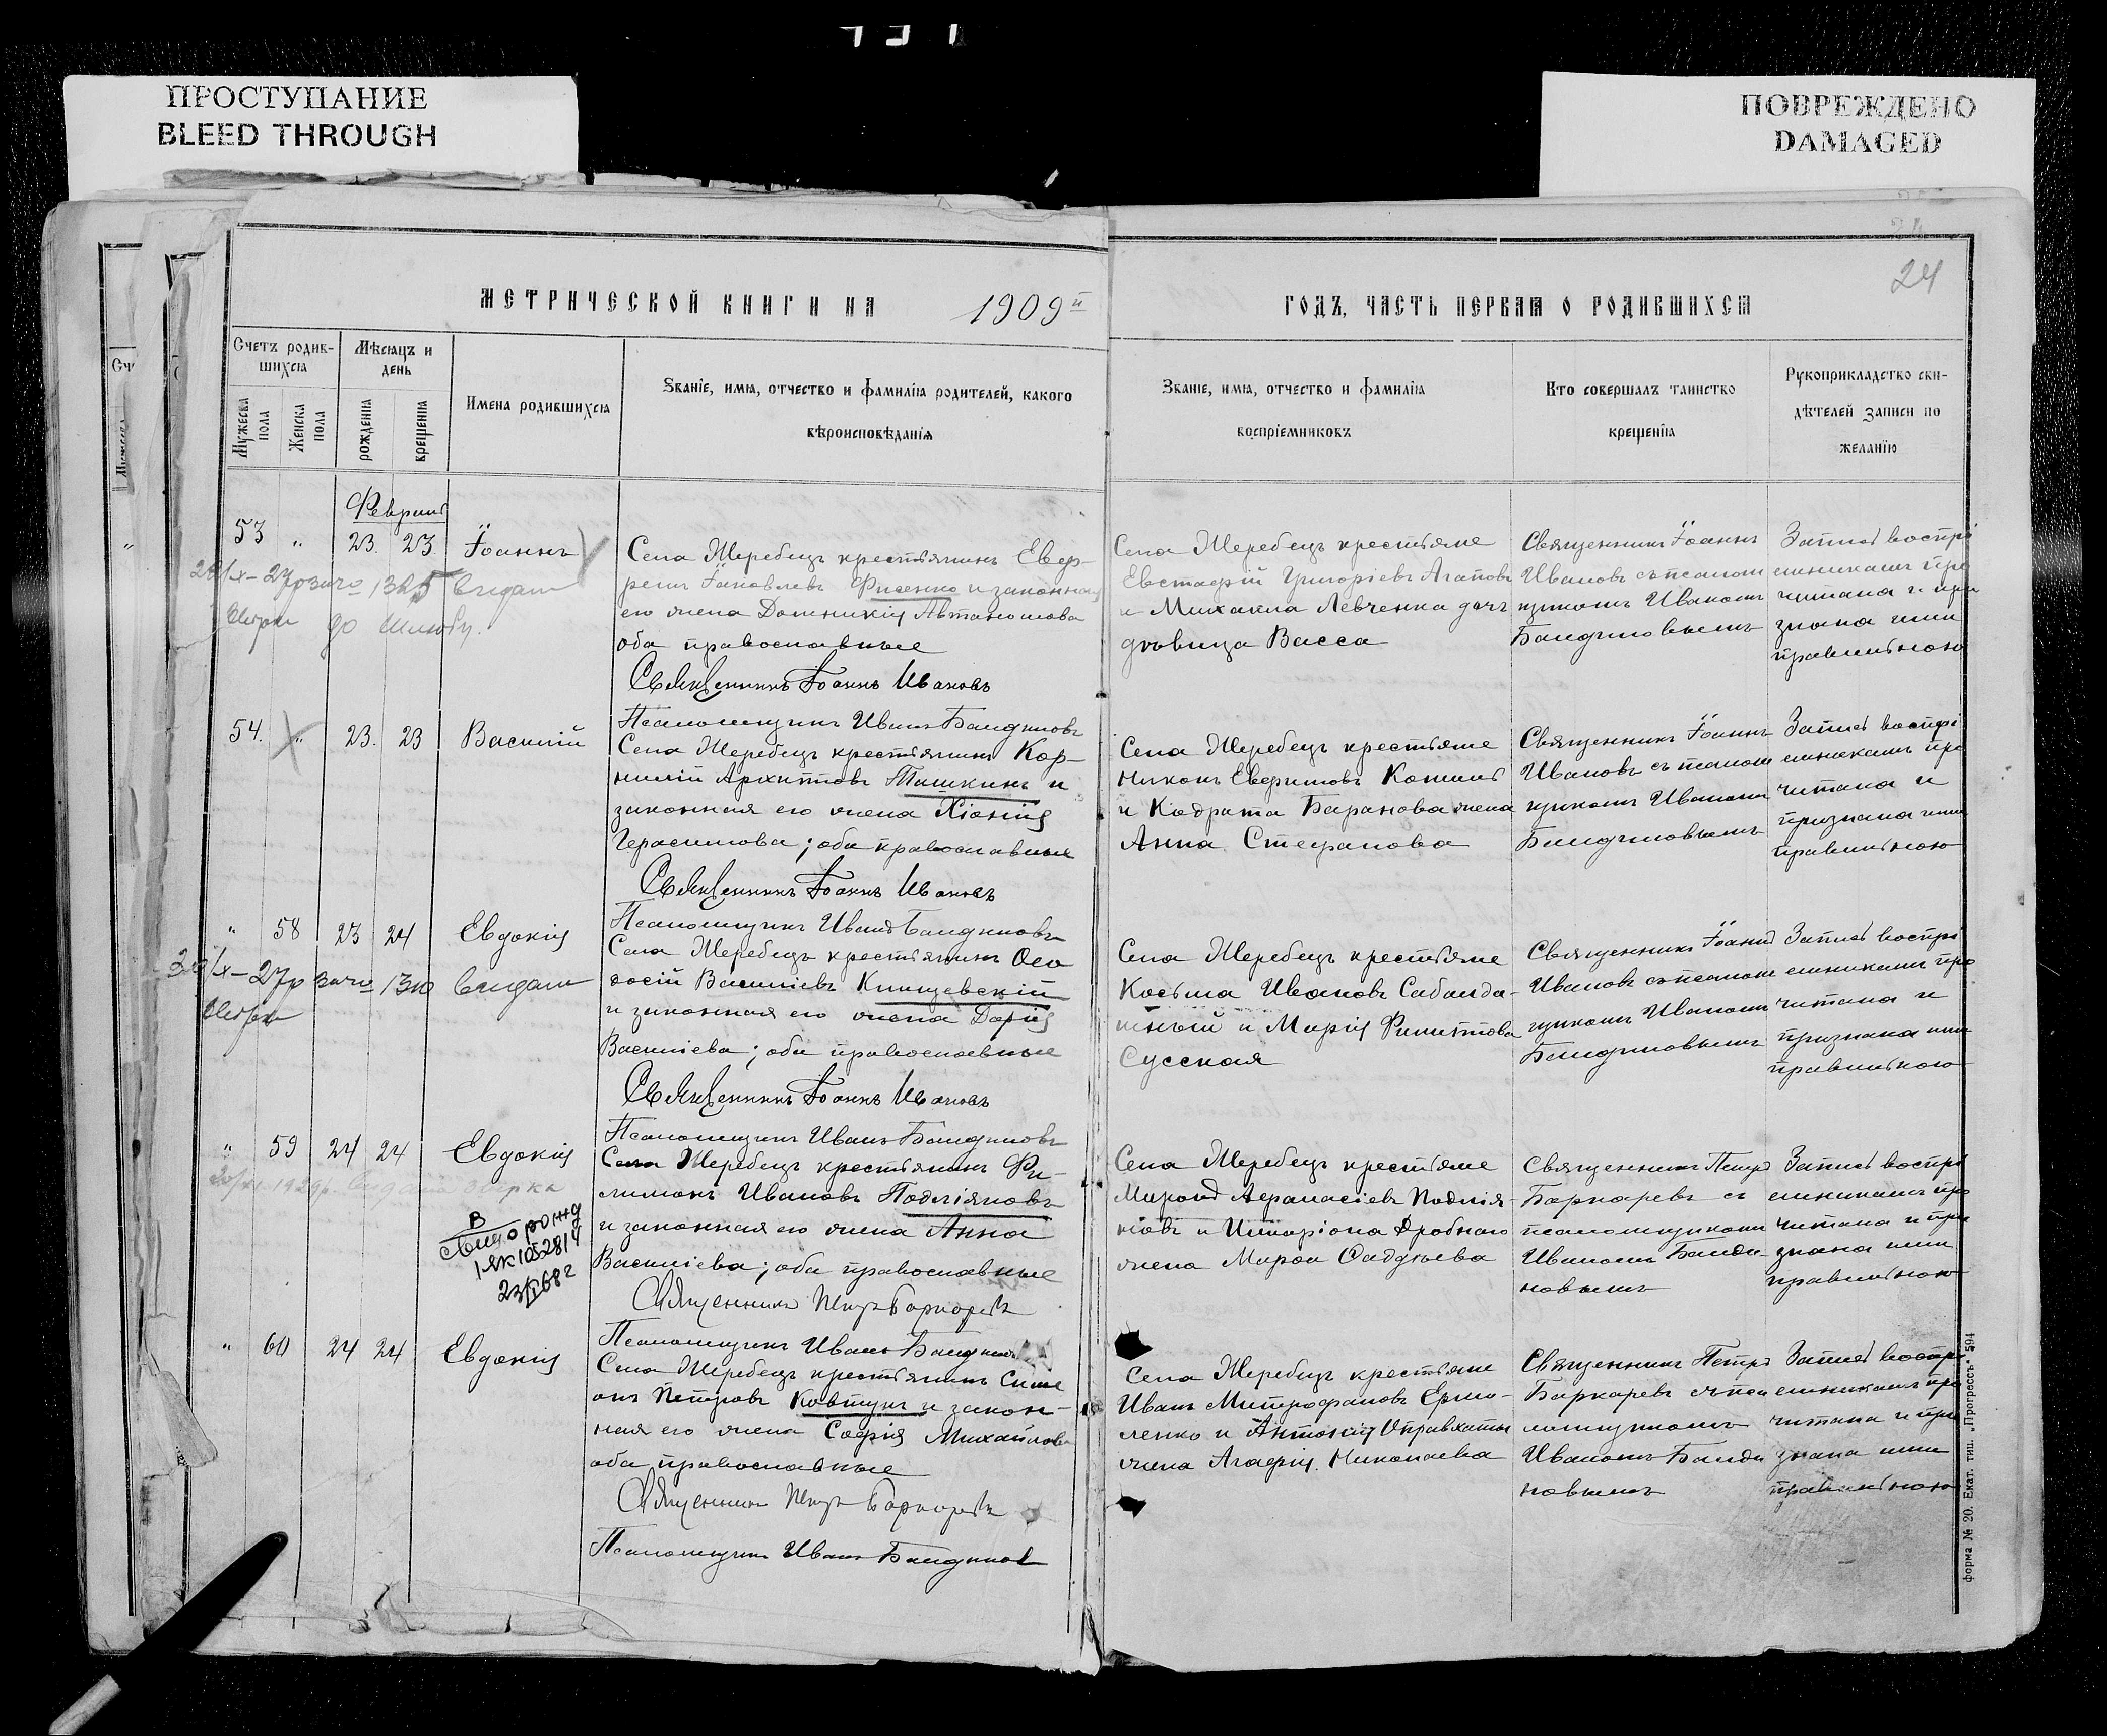 ПРОСТУПАНИЕ
BLEED THROUGH
ПОВРЕЖДЕНО
DAMAGED
24
МЕТРИЧЕСКОЙ КНИГИ НА 1909й ГОДЪ, ЧАСТЬ ПЕРВАЯ О РОДИВШИХСЯ
Счетъ родив-
шихся
Мужеска пола
Женска пола
Мѣсяцъ и
день
рожденія
крещенія
Имена родившихся
Званіе, имя, отчество и фамилія родителей, какого
вѣроисповѣданія
Званіе, имя, отчество и фамилія
воспріемниковъ
Кто совершалъ таинство
крещенія
Рукоприкладство сви-
дѣтелей записи по
желанію
Февраль
53 " 23. 23. Іоаннъ
Села Жеребецъ крестьянинъ Евф-
Іаковлевъ Фисенко и законная
его жена Домникія Автаномова
оба православные
Священникъ Іоаннъ Ивановъ
Псаломщикъ Иванъ Бандиновъ
Села Жеребецъ крестьяне
Евстафій Григоріевъ Агаповъ
и Михаила Левченка дочь
дѣвица Васса
Священникъ Іоаннъ
Ивановъ съ псалом
щикомъ Иваномъ
Бандиновымъ
Запись воспрі
емникамъ про
читана и при
знана ими
правильною
54. " 23. 23 Василій
Села Жеребецъ крестьянинъ Кор-
нилій Архиповъ Тишкинъ и
законная его жена Хіонія
Герасимова; оба православные
Священникъ Іоаннъ Ивановъ
Псаломщикъ Иванъ Бандиновъ
Села Жеребецъ крестьяне
Никонъ Евфимовъ
и Кодрата Баранова жена
Анна Стефанова
Священникъ Іоаннъ
Ивановъ съ псалом
щикомъ Иваномъ
Бандиновымъ
Запись воспрі
емникамъ про
читана и
признана ими
правильною
" 58 23 24 Евдокія
Села Жеребецъ крестьянинъ Ѳео
досій Василіевъ Клищевскій
и законная его жена Дарія
Василіева; оба православные
Священникъ Іоаннъ Ивановъ
Псаломщикъ Иванъ Бандиновъ
Села Жеребецъ крестьяне
Косьма Ивановъ
и Марія Филиппова
Сусская
Священникъ Іоаннъ
Ивановъ съ псалом
щикомъ Иваномъ
Бандиновымъ
Запись воспрі
емникамъ про
читана и
признана ими
правильною
" 59 24 24 Евдокія
23/I 68 г
Села Жеребецъ крестьянинъ Фи-
лимонъ Ивановъ Подліяновъ
и законная его жена Анна
Василіева; оба православные
Священникъ Петръ Баркаревъ
Псаломщикъ Иванъ Бандиновъ
Села Жеребецъ крестьяне
Миронъ Аѳанасіевъ Подлія-
новъ и Иларіона Дробнаго
жена Марѳа
Священникъ Петръ
Баркаревъ съ
псаломщикомъ
Иваномъ Банди-
новымъ
Запись воспрі
емникамъ про
читана и при
знана ими
правильною
" 60 24 24 Евдокія
Села Жеребецъ крестьянинъ Симе
онъ Петровъ Ковтунъ и закон-
ная его жена Софія Михайлова
оба православные
Священникъ Петръ Баркаревъ
Псаломщикъ Иванъ Бандиновъ
Села Жеребецъ крестьяне
Иванъ Митрофановъ Ермо-
ленко и Антонія
жена Агафія Николаева
Священникъ Петръ
Баркаревъ съ пса
ломщикомъ
Иваномъ Банди
новымъ
Запись воспрі
емникамъ про
читана и при
знана ими
правильною
форма № 20. Екат. тип. „Прогрессъ“ 594